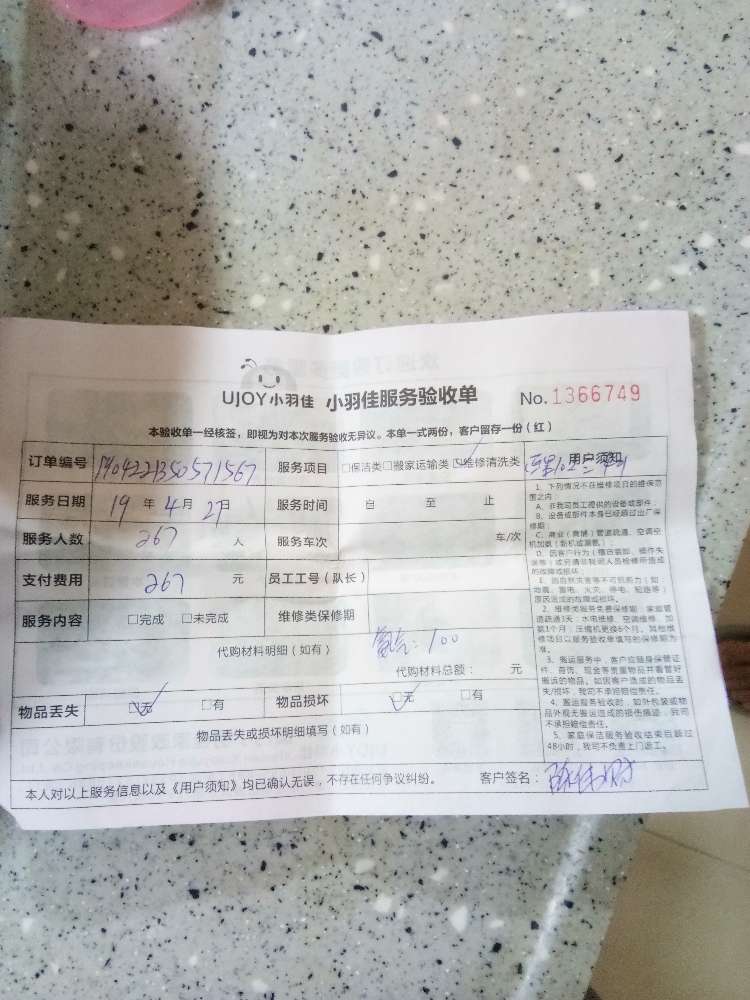 UJOY小羽佳 小羽佳服务验收单 No.1366749
本验收单一经核签，即视为对本次服务验收无异议。本单一式两份，客户留存一份（红）
订单编号 1904221350571567 服务项目 □保洁类□搬家运输类☑维修清洗类
服务日期 19年4月27日 服务时间 自 至 止
服务人数 267 人 服务车次 车/次
支付费用 267 元 员工工号（队长）
服务内容 □完成 □未完成 维修类保修期
代购材料明细（如有） 氨气：100
代购材料总额： 元
物品丢失 ☑无 □有 物品损坏 ☑无 □有
物品丢失或损坏明细填写（如有）
本人对以上服务信息以及《用户须知》均已确认无误，不存在任何争议纠纷。 客户签名：
用户须知
1、下列情况不在维修项目的维保范
围之内：
A、非我司员工提供的设备或部件；
B、设备或部件本身已经超过出厂保
修期；
C、商业（商铺）管道疏通、空调空
机加氨（新机或漏氨）；
D、因客户行为（擅自装卸、操作失
误等）或另请非我司人员检修所造成
的故障或损坏
E、因自然灾害等不可抗拒力（如
地震、雷电、火灾、停电、短路等）
原因造成的故障或损坏。
2、维修类服务免费保修期：家庭管
道疏通3天；水电维修、空调维修、加
氨1个月；压缩机更换6个月。其他维
修项目以服务验收单填写的保修期为
准。
3、搬运服务中，客户应随身保管证
件、首饰、现金等贵重物品并看管好
搬运的物品。如因客户造成的物品丢
失/损坏，我司不承担赔偿责任。
4、搬运服务验收时，如外包装或物
品外观无搬运造成的损伤痕迹，我司
不承担赔偿责任。
5、家庭保洁服务验收结束后超过
48小时，我司不负责上门返工。